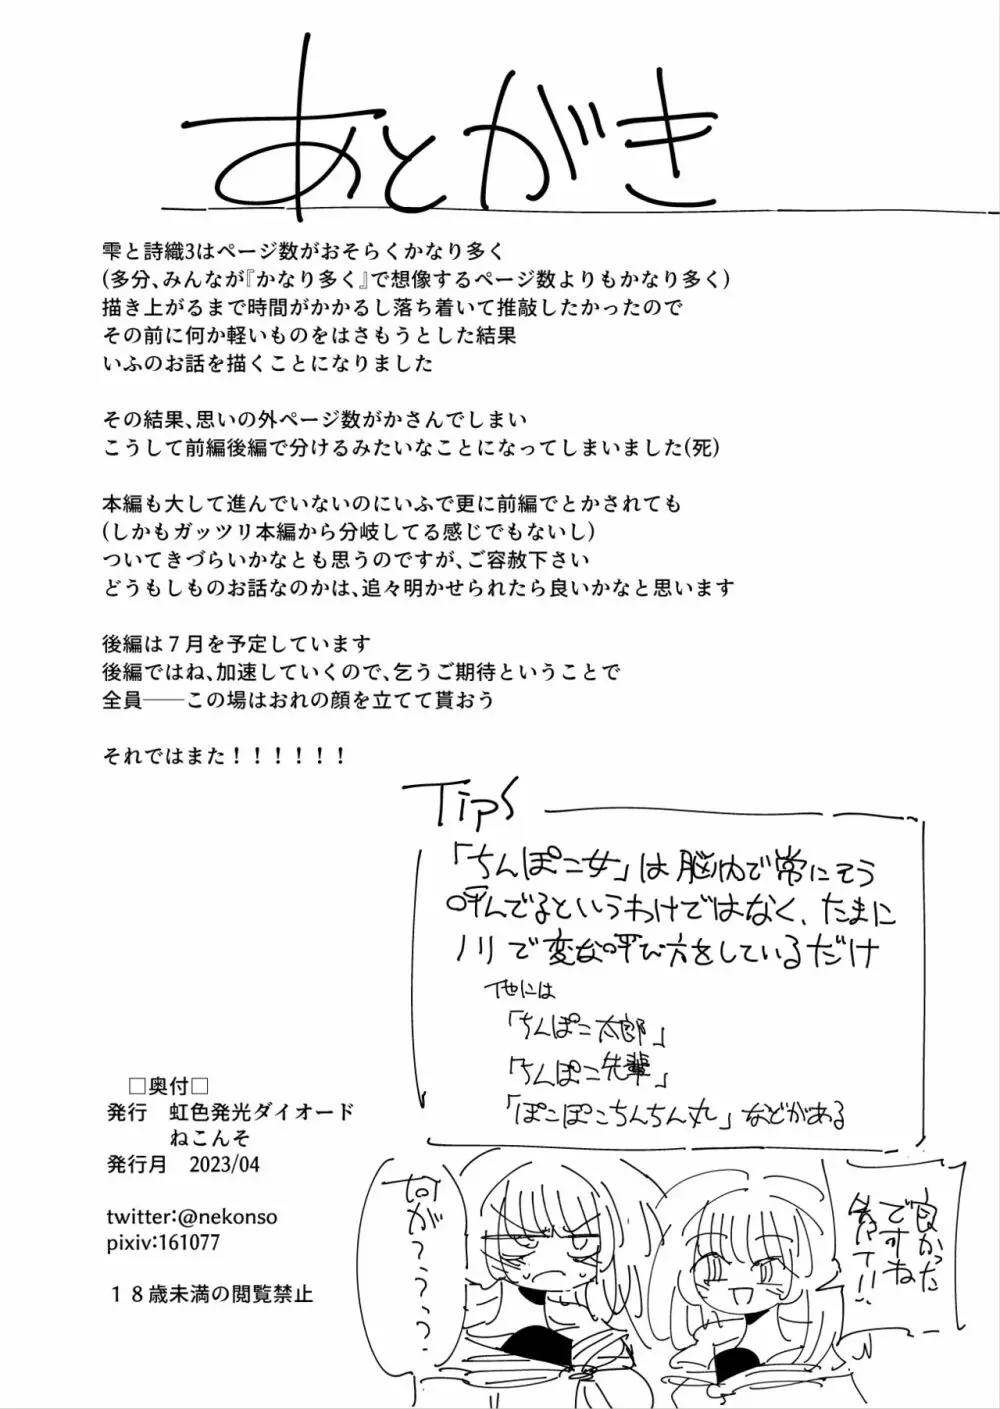 あとがき
雫と詩織3はページ数がおそらくかなり多く
(多分、みんなが『かなり多く』で想像するページ数よりもかなり多く)
描き上がるまで時間がかかるし落ち着いて推敲したかったので
その前に何か軽いものをはさもうとした結果
いふのお話を描くことになりました
その結果、思いの外ページ数がかさんでしまい
こうして前編後編で分けるみたいなことになってしまいました(死)
本編も大して進んでいないのにいふで更に前編でとかされても
(しかもガッツリ本編から分岐してる感じでもないし)
ついてきづらいかなとも思うのですが、ご容赦下さい
どうもしものお話なのかは、追々明かせられたら良いかなと思います
後編は７月を予定しています
後編ではね、加速していくので、乞うご期待ということで
全員――この場はおれの顔を立てて貰おう
それではまた！！！！！！
Tips
「ちんぽこ女」は脳内で常にそう
呼んでるというわけではなく、たまに
ノリで変な呼び方をしているだけ
他には
「ちんぽこ太郎」
「ちんぽこ先輩」
「ぽこぽこちんちん丸」などがある
□奥付□
発行　虹色発光ダイオード
ねこんそ
発行月　2023/04
twitter:@nekonso
pixiv:161077
１８歳未満の閲覧禁止
良かった
ですね
先パイ!!
何が？？？？